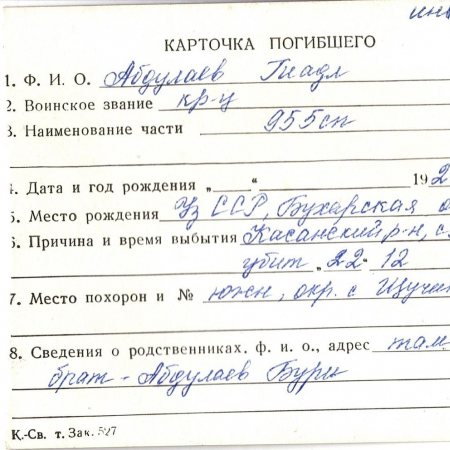 инв
КАРТОЧКА ПОГИБШЕГО
1. Ф. И. О. Абдулаев Гиадл
2. Воинское звание кр-ц
3. Наименование части 955сп
4. Дата и год рождения „ “ 192
5. Место рождения Уз ССР, Бухарская о
6. Причина и время выбытия Касанский р-н, с.
убит „22“ 12
7. Место похорон и № южн, окр. с Щучи
8. Сведения о родственниках, ф. и. о., адрес там
брат - Абдулаев Бури
К.-Св. т. Зак. 527